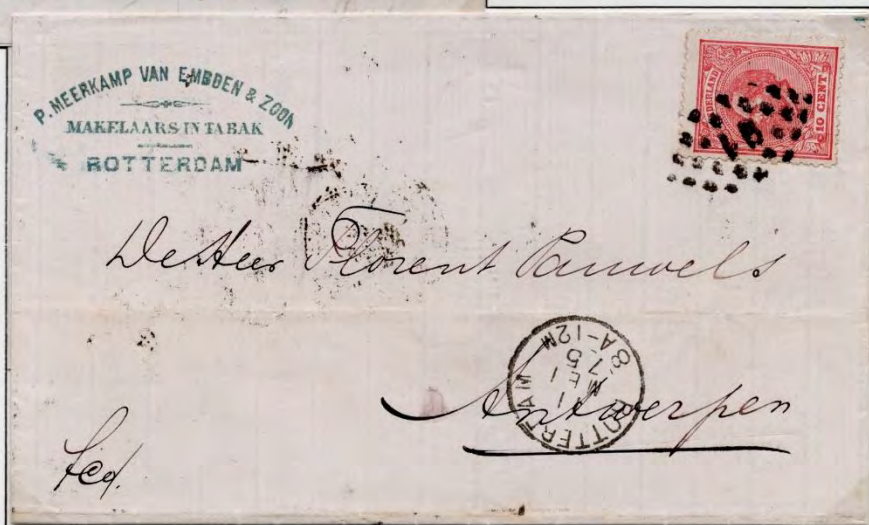 P. MEERKAMP VAN EMBDEN & ZOON
MAKELAARS IN TABAK
ROTTERDAM
NEDERLAND
10 CENT
De Heer Florent Pauwels
ROTTERDAM
11
MEI
75
8A-12M
Antwerpen